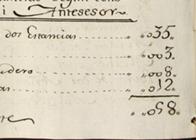 i Antesesor
dos Estancias ... 035.
003.
dero ... 008.
as ... 012.
058.